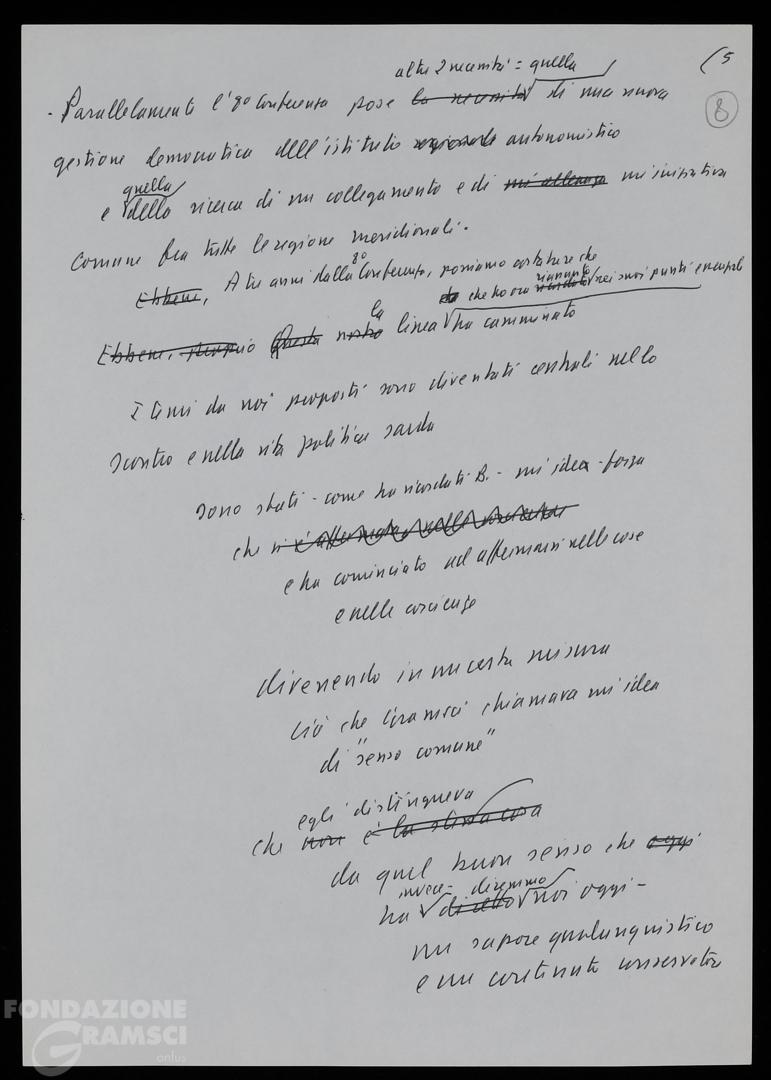 altre 2 necessità = quella
(5
8
- Parallelamente l'8ª Conferenza pose la necessità di una nuova
gestione democratica dell'istituto regionale autonomistico
quella
e della ricerca di un collegamento e di un'alleanza un'iniziativa
comune fra tutte le regione meridionali.
Ebbene, A tre anni dalla 8ª Conferenza, possiamo constatare che
che ho ora riassunto nei suoi punti essenziali
Ebbene, proprio questa nostra la linea ha camminato
I temi da noi proposti sono diventati centrali nello
scontro e nella vita politica sarda
sono stati - come ha ricordato B. - un'idea-forza
che si è affermata nelle coscienze
e ha cominciato ad affermarsi nelle cose
e nelle coscienze
divenendo in una certa misura
ciò che Gramsci chiamava un'idea
di "senso comune"
egli distingueva
che non è la stessa cosa
da quel buon senso che oggi
invece - diremmo
ha detto noi oggi -
un sapore qualunquistico
e un contenuto conservatore
FONDAZIONE
GRAMSCI
onlus